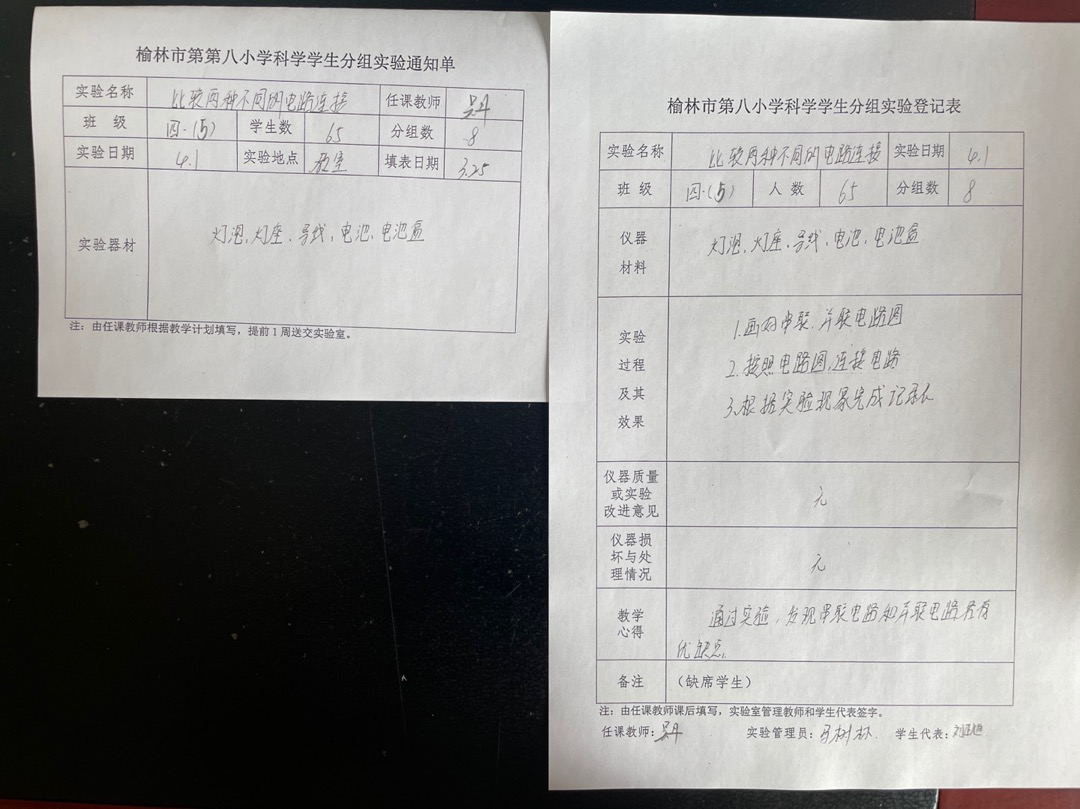 榆林市第第八小学科学学生分组实验通知单
实验名称 比较两种不同的电路连接 任课教师 吴丹
班 级 四.(5) 学生数 65 分组数 8
实验日期 4.1 实验地点 教室 填表日期 3.25
实验器材 灯泡、灯座、导线、电池、电池盒
注：由任课教师根据教学计划填写，提前1周送交实验室。
榆林市第八小学科学学生分组实验登记表
实验名称 比较两种不同的电路连接 实验日期 4.1
班 级 四.(5) 人 数 65 分组数 8
仪器
材料
灯泡、灯座、导线、电池、电池盒
实验
过程
及其
效果
1.画好串联、并联电路图
2.按照电路图,连接电路
3.根据实验现象完成记录
仪器质量
或实验
改进意见
无
仪器损
坏与处
理情况
无
教学
心得
通过实验，发现串联电路和并联电路各有
优缺点.
备注 （缺席学生）
注：由任课教师课后填写，实验室管理教师和学生代表签字。
任课教师：吴丹 实验管理员：马树林 学生代表：